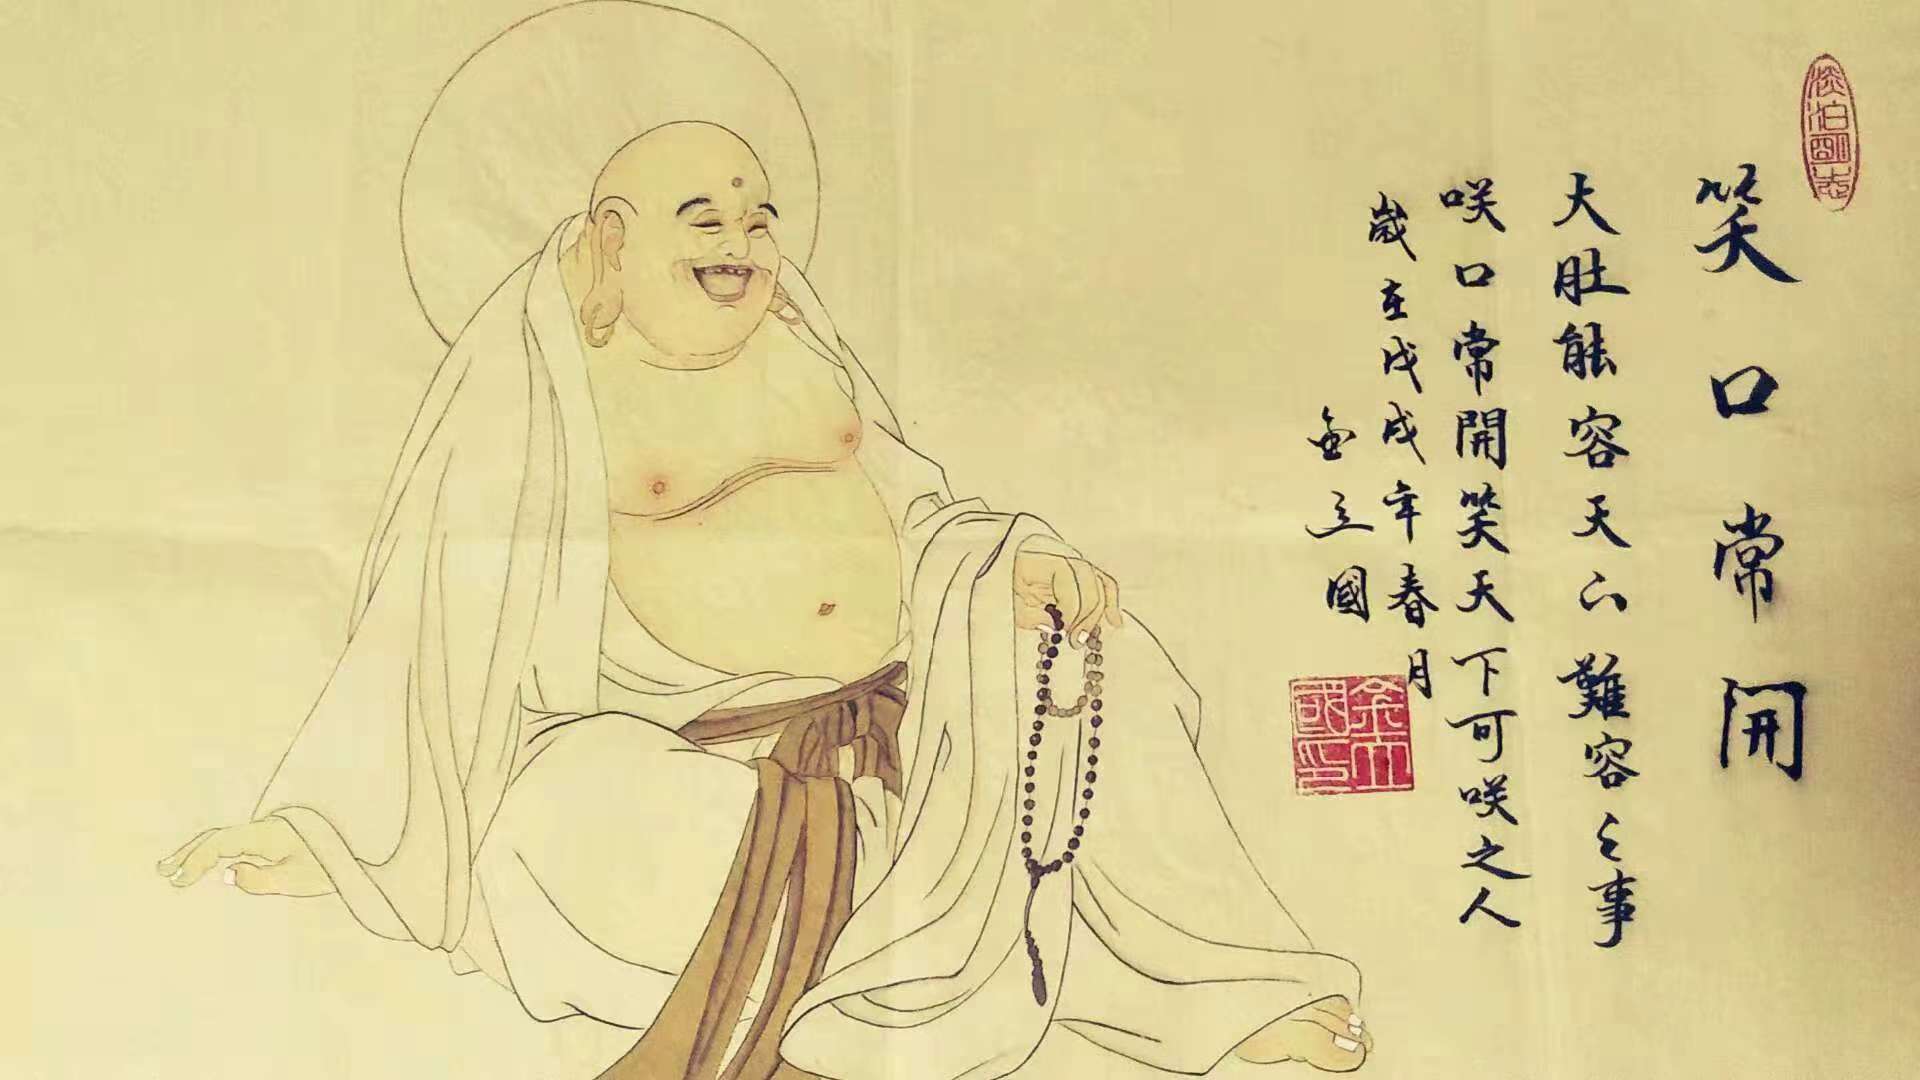 淡泊明志
笑口常開
大肚能容天下難容之事
咲口常開笑天下可咲之人
歲在戊戌年春月
金立國
金立國印